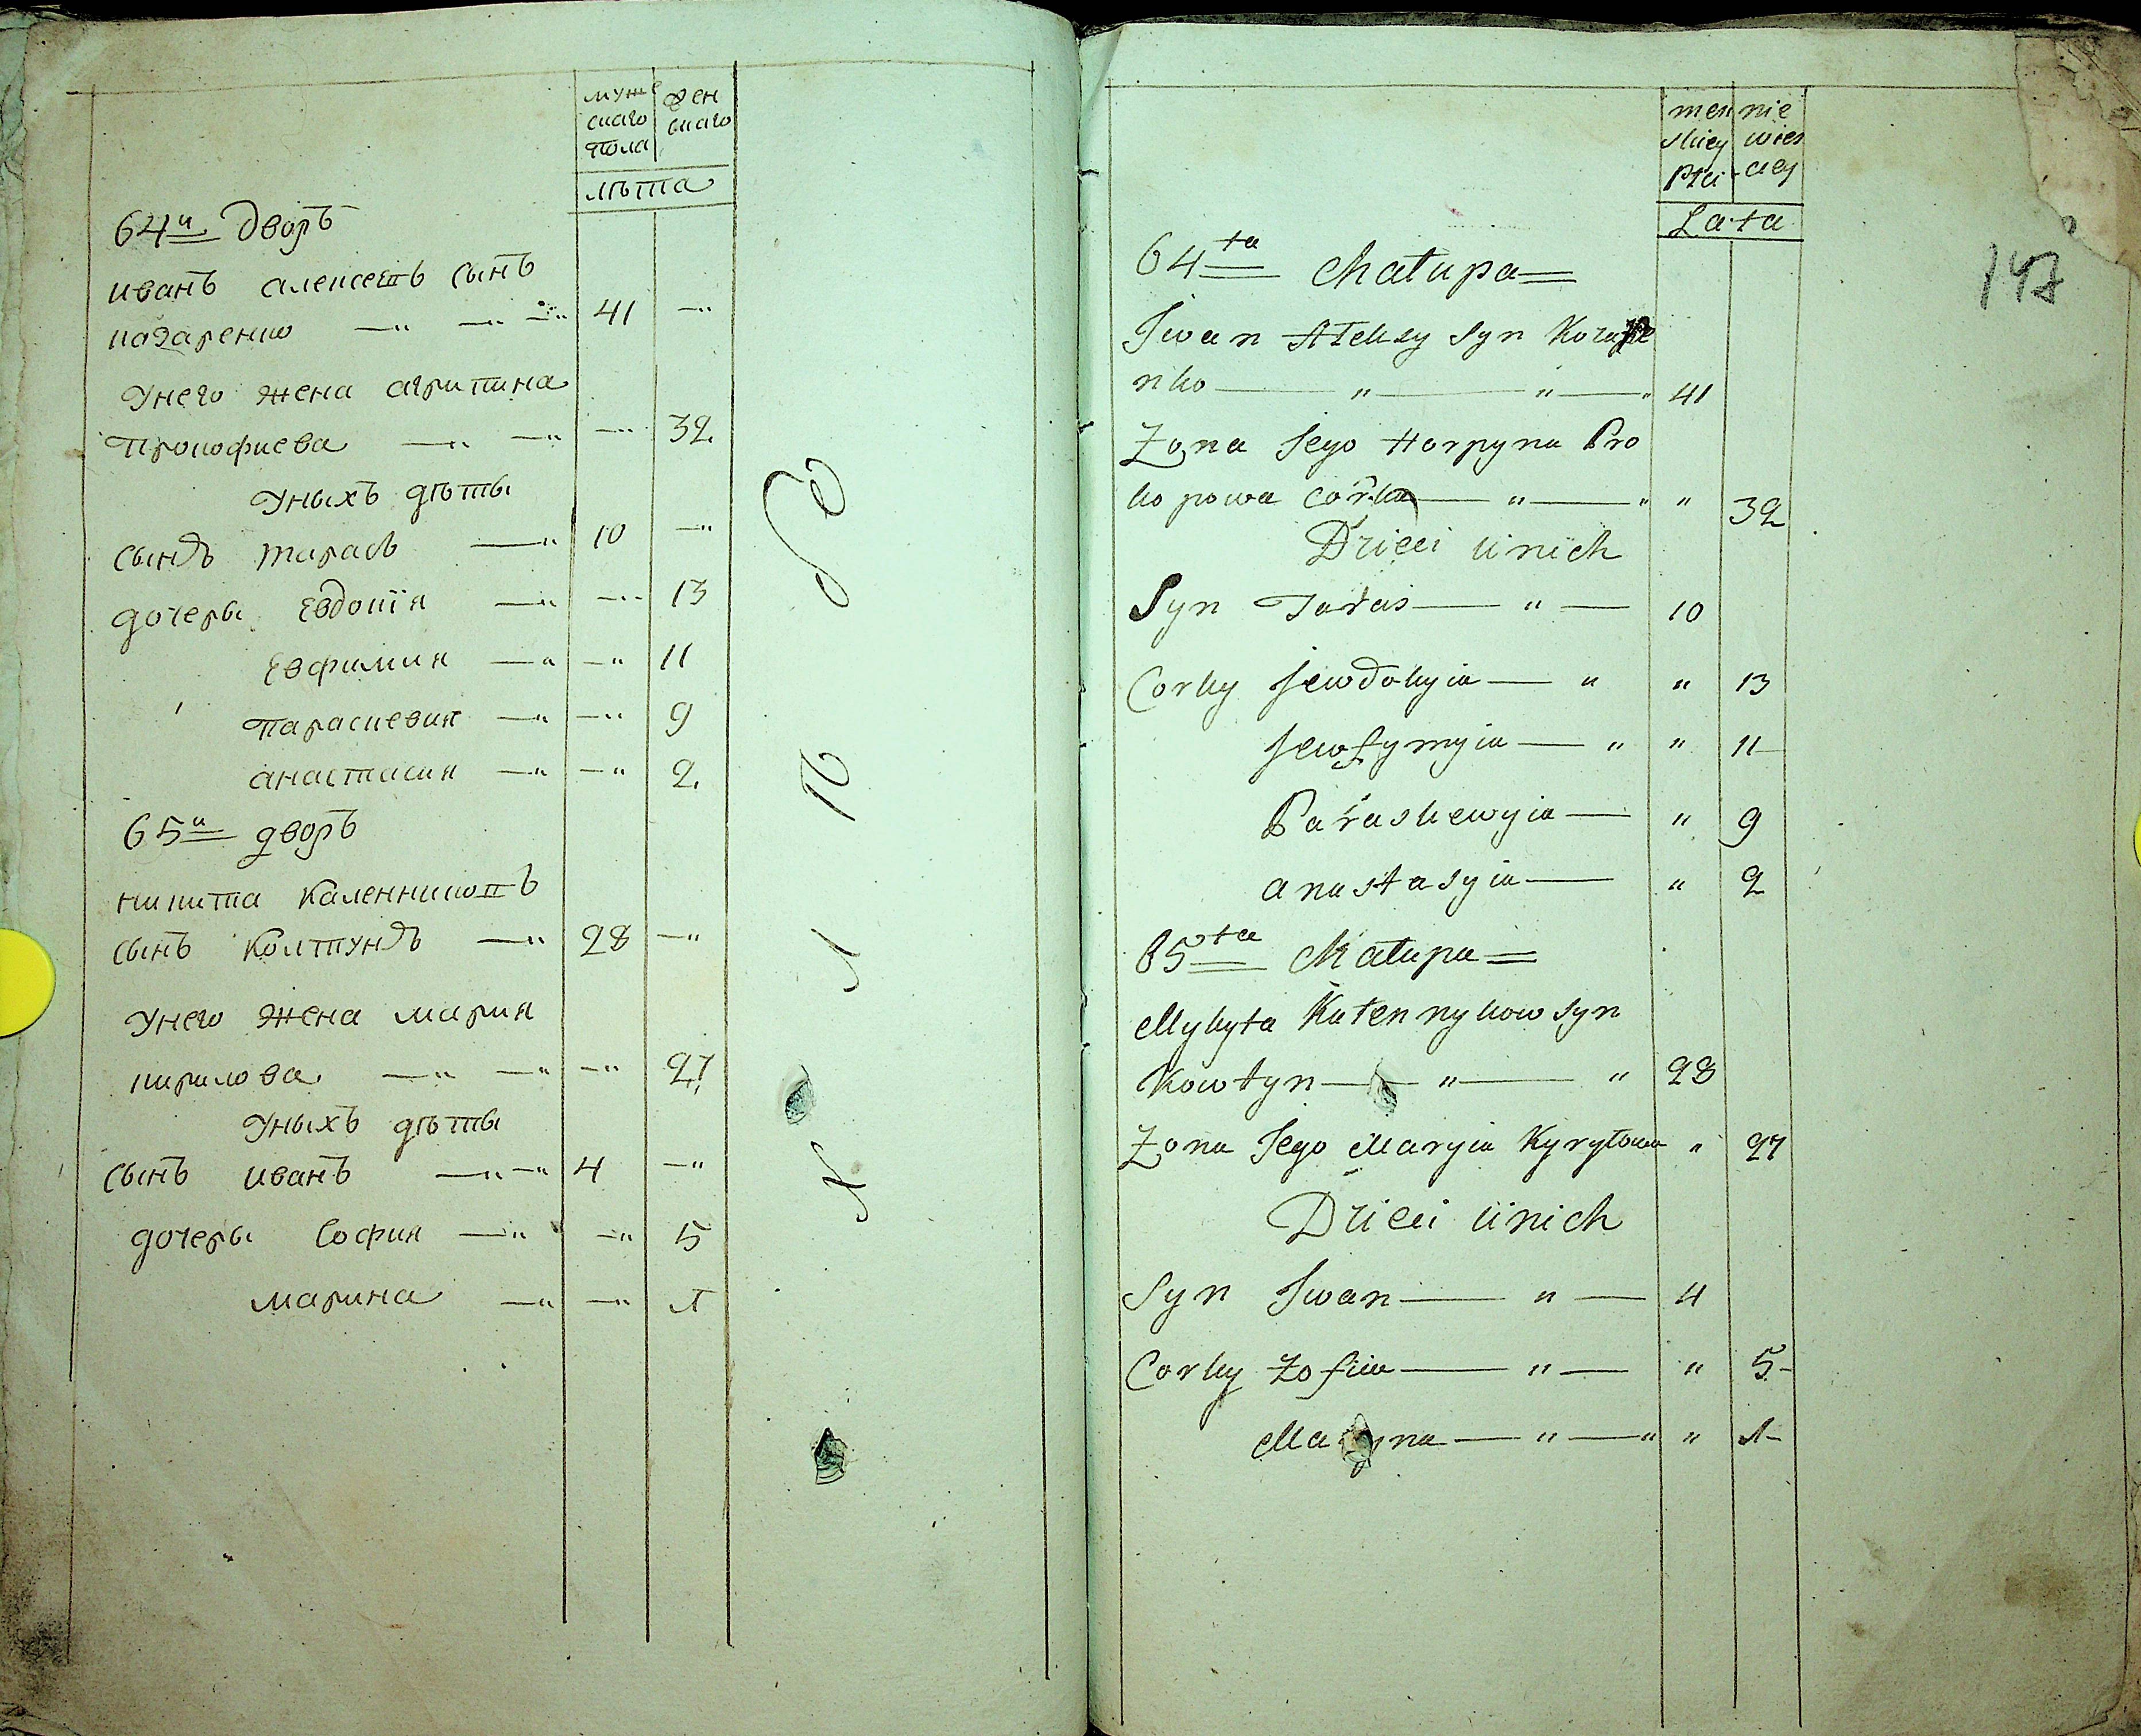 муже
скаго
пола
жен
скаго
лѣта
64й дворъ
иванъ алексеевъ сынъ
казаренко 41
унего жена агрипина
прокофиева 32
уныхъ дѣты
сынъ тарасъ 10
дочеры евдокія 13
евфимия 11
параскевия 9
анастасия 2
65й дворъ
никита каленниковъ
сынъ Колтунъ 28
унего жена мария
кирилова 27
уныхъ дѣты
сынъ иванъ 4
дочеры софия 5
марина 1
men
skiey
Płci
nie
wies
ciey
Lata
147
64ta Chałupa
Iwan Ałeksy syn Kozare
nko 41
Zona Jego Horpyna Pro
kopowa corka 32
Dzieci unich
Syn Taras 10
Corky Jewdokyia 13
Jewfymyia 11
Paraskewyia 9
anastasyia 2
65ta Chałupa
Mykyta Kałennykow syn
Kowtyn 28
Zona Jego Maryia Kyryłowa 27
Dzieci unich
Syn Iwan 4
Corky Zofiia 5
Ma yna 1